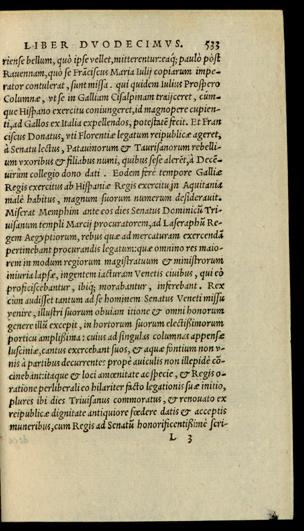 LIBER DVODECIMVS. 533
riense bellum, quò ipse vellet, mitterentur: eaq; paulò pòst
Rauennam, quò se Frãciscus Maria Iulij copiarum impe-
rator contulerat, sunt missa. qui quidem Iulius Prospero
Columnæ, vt se in Galliam Cisalpinam traijceret, cùm-
que Hispano exercitu coniungeret, id magnopere cupien-
ti, ad Gallos ex Italia expellendos, potestatẽ fecit. Et Fran
ciscus Donatus, vti Florentiæ legatum reipublicæ ageret,
à Senatu lectus, Patauinorum & Taurisanorum rebelli-
um vxoribus & filiabus numi, quibus sese alerẽt, à Decẽ-
uirûm collegio dono dati. Eodem ferè tempore Galliæ
Regis exercitus ab Hispaniæ Regis exercitu in Aquitania
malè habitus, magnum suorum numerum desiderauit.
Miserat Memphim ante eos dies Senatus Dominicũ Tri-
uisanum templi Marcij procuratorem, ad Laseraphũ Re-
gem Aegyptiorum, rebus quæ ad mercaturam exercendã
pertinebant procurandis legatum: quæ omnino res maio-
rem in modum regiorum magistratuum & ministrorum
iniuria lapsæ, ingentem iacturam Venetis ciuibus, qui eò
proficiscebantur, ibiq; morabantur, inferebant. Rex
cùm audisset tantum ad se hominem Senatus Veneti missu
venire, illustri suorum obuiam itione & omni honorum
genere illũ excepit, in hortorum suorum electissimorum
porticu amplissima: cuius ad singulas columnas appensæ
lusciniæ, cantus exercebant suos, & aquæ fontium non v-
nis à partibus decurrentes propè auiculis non illepidè cõ-
cinebant: itaque & loci amœnitate ac specie, & Regis o-
ratione perliberali eo hilariter facto legationis suæ initio,
plures ibi dies Triuisanus commoratus, & renouato ex
reipublicæ dignitate antiquiore fœdere datis & acceptis
muneribus, cum Regis ad Senatũ honorificentissimè scri-
L 3